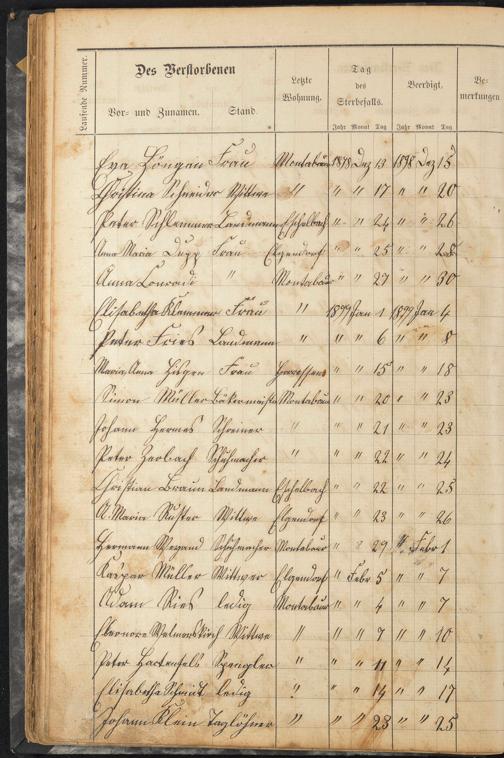 Laufende Nummer.
Des Verstorbenen
Vor- und Zunamen. Stand.
Letzte Wohnung.
Tag des Sterbefalls.
Jahr Monat Tag
Beerdigt.
Jahr Monat Tag
Be-
merkungen
Eva Frau Montabaur 1898 Dez 13 1898 Dez 15
Christina Schneider Wittwe " " " 17 " " 20
Peter Schlemmer Landmann Eschelbach " " 24 " " 26
Anna Maria Dupp Frau Elgendorf " " 25 " " 28
Anna Conradi " Montabaur " " 27 " " 30
Elisabetha Klemmer Frau " 1899 Jan 1 1899 Jan 4
Peter Fries Landmann " " " 6 " " 8
Maria Anna Hisgen Frau " " 15 " " 18
Simon Müller Bäckermeister Montabaur " " 20 " " 23
Johann Hermes Schreiner " " " 21 " " 23
Peter Zerbach Schuhmacher " " " 22 " " 24
Christian Braun Landmann Eschelbach " " 22 " " 25
A. Maria Kuster Wittwe Elgendorf " " 23 " " 26
Hermann Schuhmacher Montabaur " " 29 " Febr 1
Kaspar Müller Wittwer Elgendorf " Febr 5 " " 7
Adam Ries ledig Montabaur " " 4 " " 7
Eleonore Wittwe " " " 7 " " 10
Peter Hartenfels Spengler " " " 11 " " 14
Elisabetha Schmidt ledig " " " 14 " " 17
Johann Klein Taglöhner " " " 23 " " 25